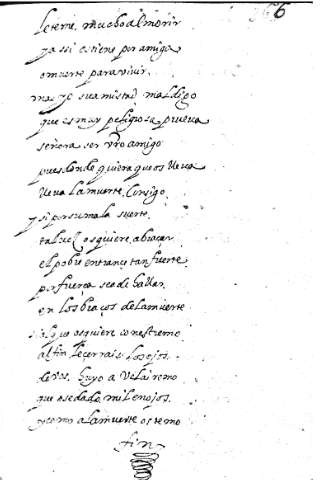 6
le teme mucho al morir
y assi os tiene por amiga
o muerte para vivir.
mas yo su amistad maldigo
que es muy peligrosa prueva
señora ser vro amigo
pues donde quiera que os lleva
lleva la muerte consigo
y si por su mala suerte
tal vez os quiere abraçar
el pobre en trançe tan fuerte
por fuerça se a de hallar
en los braços de la muerte
que os quiere con estremo
al fin le çerrais los ojos.
de vos huyo a vela i remo
que os e dado mil enojos
y como a la muerte os temo
fin